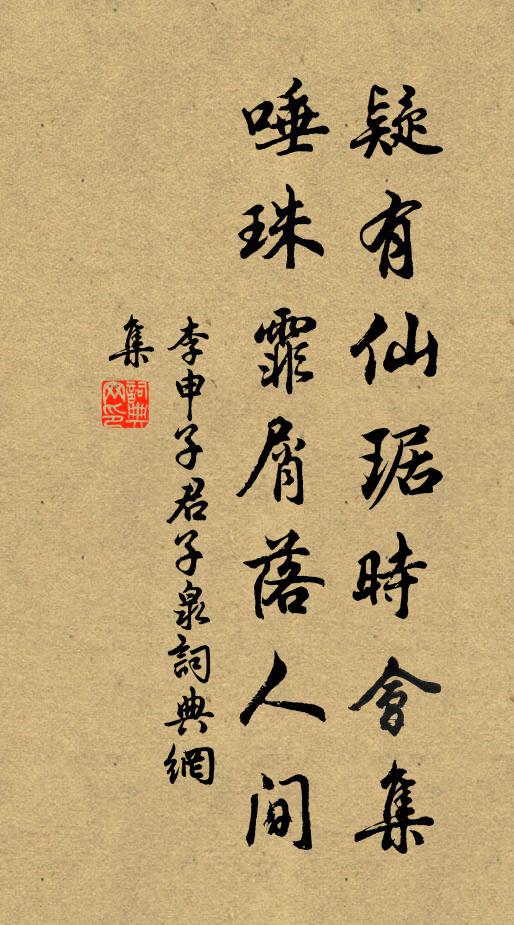 疑有仙琚時會集
唾珠霏屑落人间
李申子君子泉詞典網
集
詞典網印